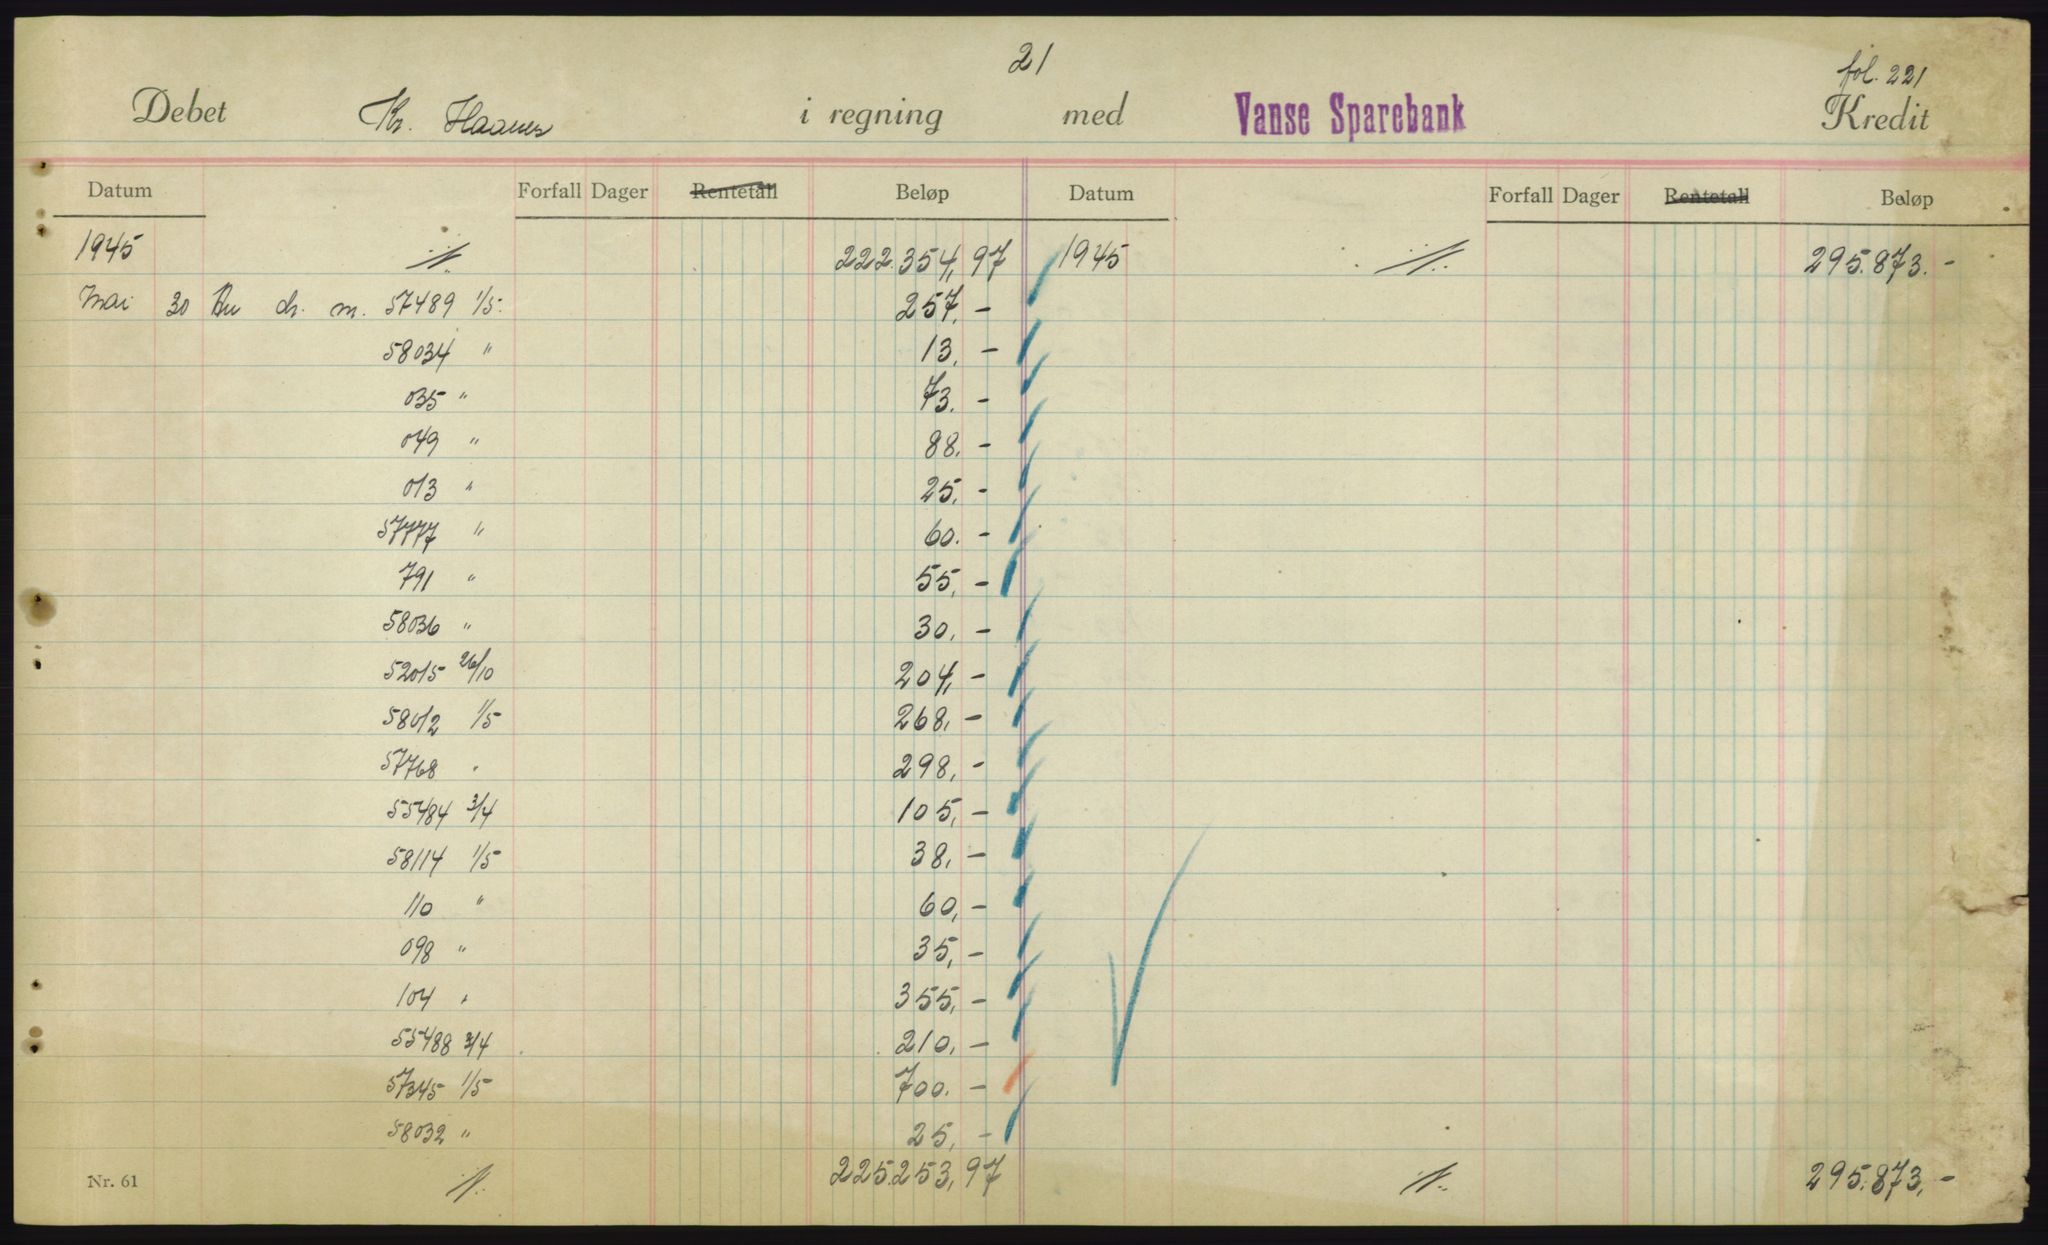 21
fol. 221
Debet Kr. Haanes i regning med Vanse Sparebank Kredit
Datum Forfall Dager Rentetall Beløp Datum Forfall Dager Rentetall Beløp
1945 222.354,97 1945 295.873.-
Mai 30 ch. m. 57489 1/5. 257,-
58034 " 13,-
035 " 73.-
049 " 88.-
013 " 25.-
57777 " 60.-
791 " 55,-
58036 " 30,-
52015 26/10 204,-
58012 1/5 268,-
57768 " 298,-
55484 3/4 105,-
58114 1/5 38,-
110 " 60,-
098 " 35,-
104 " 355,-
55488 3/4 210,-
57345 1/5 700.-
58032 " 25,-
Nr. 61 225.253,97 295.873,-